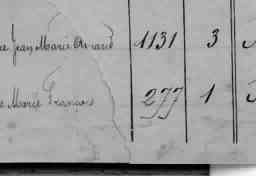 Jean Marie Avrard 1131 3
Marie François 277 1